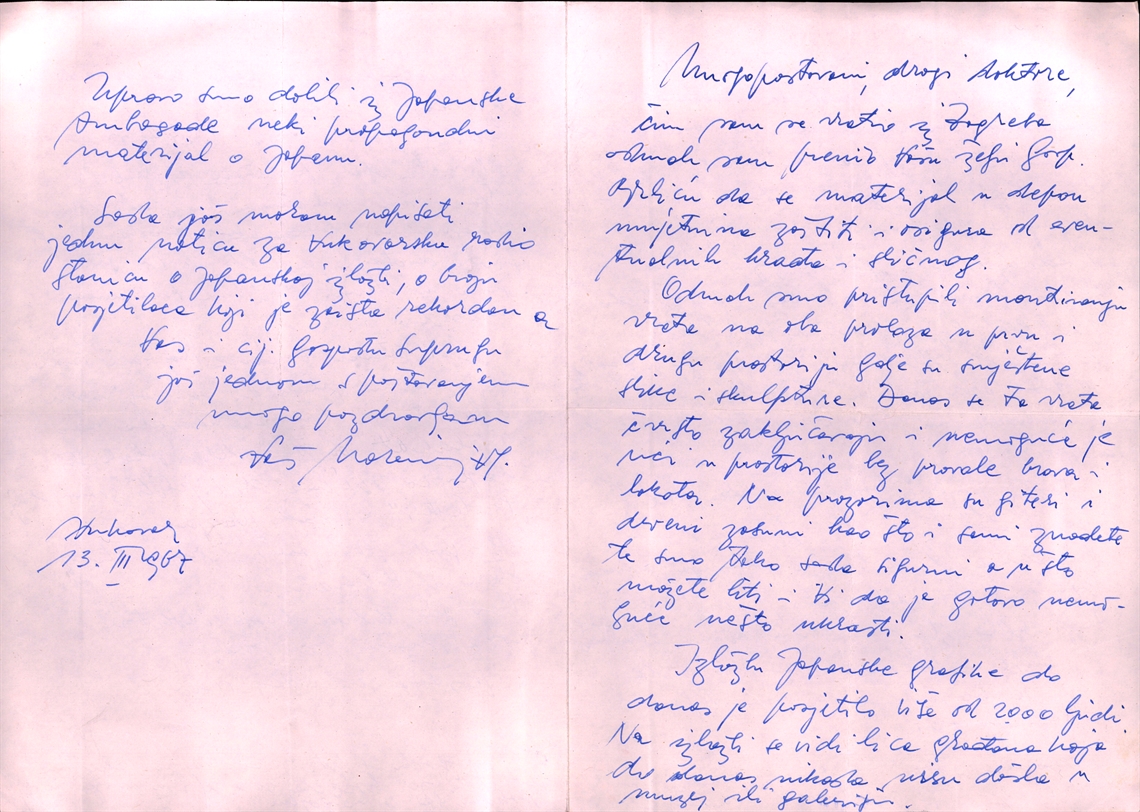 Mnogopoštovani, dragi doktore,
čim sam se vratio iz Zagreba
odmah sam prenio Vašu želju gosp.
da se materijal u depou
umjetnina zaštiti i osigura od even-
tualnih krađa i sličnog.
Odmah smo pristupili montiranju
vrata na oba prolaza u prvu i
drugu prostoriju gdje su smještene
slike i skulpture. Danas se ta vrata
čvrsto zaključavaju i nemoguće je
ući u prostorije bez provale brava i
lokota. Na prozorima su giteri i
drveni zasuni kao što i sami znadete
te smo tako sada sigurni a u što
možete biti i Vi da je gotovo nemo-
guće nešto ukrasti.
Izložbu Japanske grafike do
danas je posjetilo više od 2000 ljudi.
Na izložbi se vidi lica građana koja
do danas nikada nisu došla u
muzej ili galeriju.
Upravo smo dobili iz Japanske
Ambasade neki propagandni
materijal o Japanu.
Sada još moram napisati
jednu noticu za Vukovarsku radio
stanicu o Japanskoj izložbi, o broju
posjetilaca koji je zaista rekordan a
Vas i cij. gospođu suprugu
još jednom s poštovanjem
mnogo pozdravljam
Vaš
Vukovar
13. III 1967